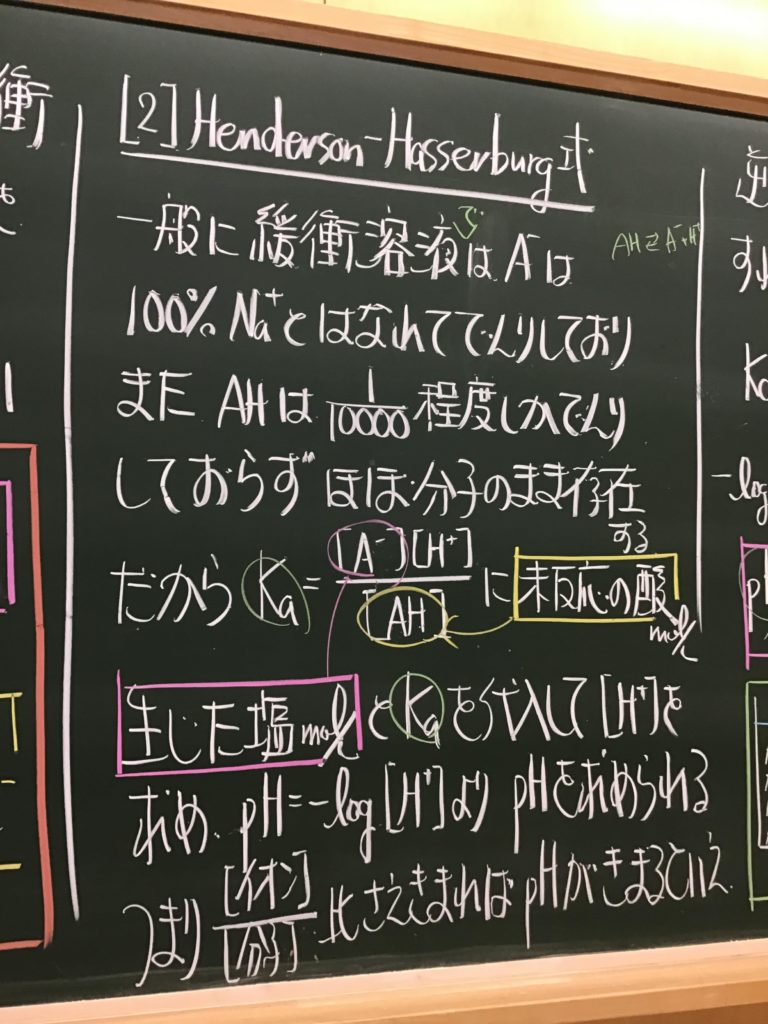 衝
[2] Henderson-Hasserburg式
一般に緩衝溶液はA⁻は
で
AH⇄A⁻+H⁺
100% Na⁺とはなれてでんりしており
また AHは 1/10000 程度しかでんり
しておらず ほぼ分子のまま存在
する
だから Ka = [A⁻][H⁺]/[AH] に 未反応の酸 mol/L
生じた塩 mol/L と Ka を代入して [H⁺]を
求め、pH=-log[H⁺]より pHを求められる
つまり [イオン]/[分子] 比さえきまれば pHがきまるといえ
-log